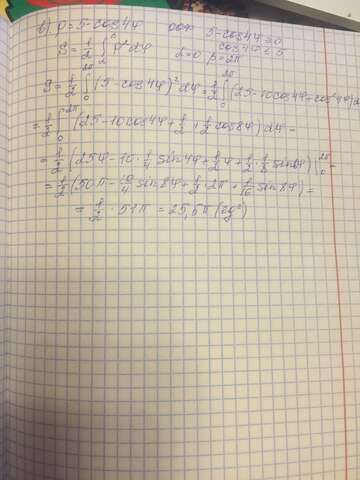 в) ρ = 5 - cos4φ 5 - cos4φ ≥ 0
cos4φ ≤ 5
S = 1/2 ∫ ρ² dφ α=0 β=2π
S = 1/2 ∫₀^2π (5 - cos4φ)² dφ = 1/2 ∫₀^2π (25 - 10cos4φ + cos²4φ) dφ
= 1/2 ∫₀^2π (25 - 10cos4φ + 1/2 + 1/2 cos8φ) dφ =
= 1/2 (25φ - 10 · 1/4 sin4φ + 1/2 φ + 1/2 · 1/8 sin8φ) |₀^2π
= 1/2 (50π - 10/4 sin8φ + 1/2 · 2π + 1/16 sin8φ) =
= 1/2 · 51π = 25,5π (ед²)